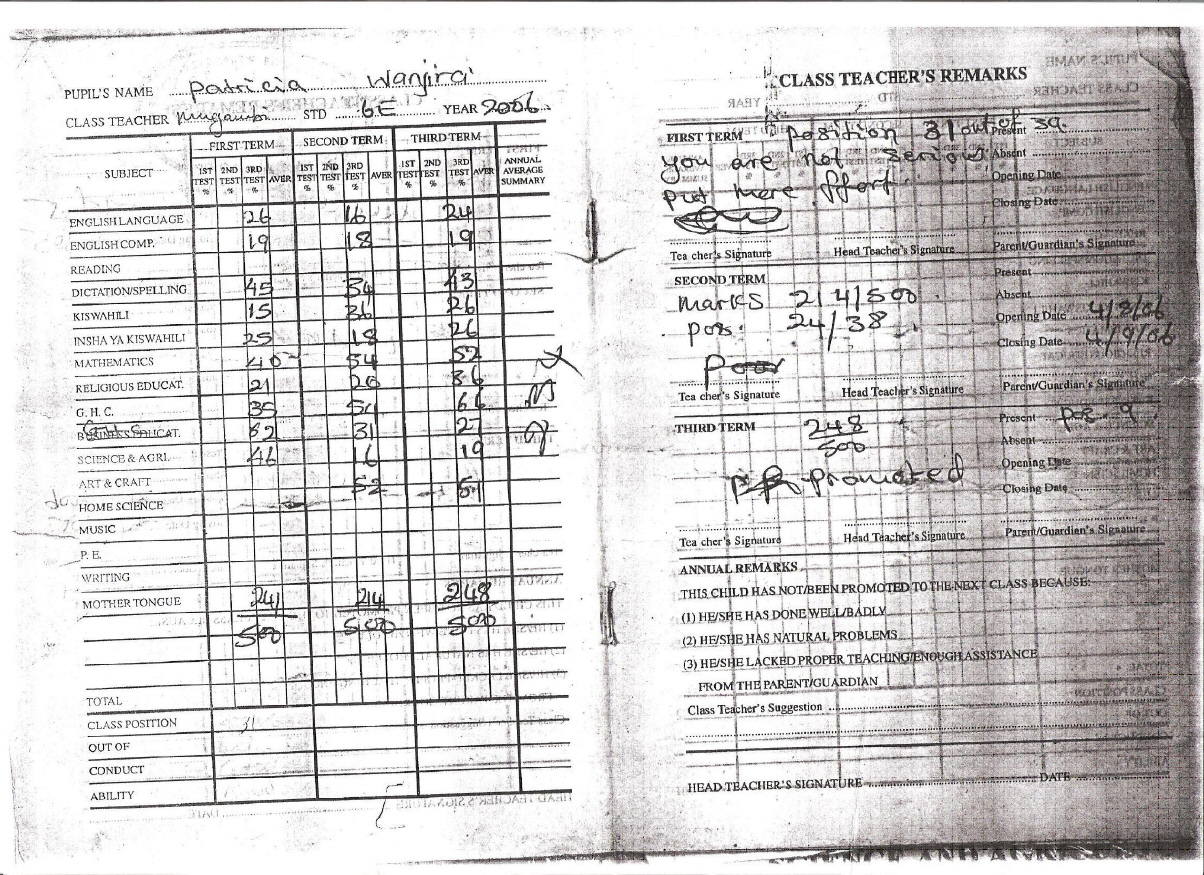 PUPIL'S NAME Patricia Wanjira
CLASS TEACHER STD 6E YEAR 2006
SUBJECT FIRST TERM SECOND TERM THIRD TERM ANNUAL AVERAGE SUMMARY
1ST TEST % 2ND TEST % 3RD TEST % AVER 1ST TEST % 2ND TEST % 3RD TEST % AVER 1ST TEST % 2ND TEST % 3RD TEST % AVER
ENGLISH LANGUAGE 26 16 24
ENGLISH COMP. 19 18 19
READING
DICTATION/SPELLING 45 34 43
KISWAHILI 15 36 26
INSHA YA KISWAHILI 25 18 26
MATHEMATICS 40 54 52
RELIGIOUS EDUCAT. 21 20 36
G. H. C. 35 66
BUSINESS EDUCAT. 31 27
SCIENCE & AGRI. 46 16 19
ART & CRAFT 52
HOME SCIENCE
MUSIC
P. E.
WRITING
MOTHER TONGUE 241 214 248
500 500 500
TOTAL
CLASS POSITION 31
OUT OF
CONDUCT
ABILITY
CLASS TEACHER'S REMARKS
FIRST TERM Position 31 out of 39. Present
you are not serious Absent
Opening Date
put more effort Closing Date
Tea cher's Signature Head Teacher's Signature Parent/Guardian's Signature
SECOND TERM Present
Marks 214/500 Absent
Pos. 24/38 Opening Date 4/8/06
Closing Date 4/9/06
Poor
Tea cher's Signature Head Teacher's Signature Parent/Guardian's Signature
THIRD TERM 248 Present Pos 9
500 Absent
Opening Date
promoted Closing Date
Tea cher's Signature Head Teacher's Signature Parent/Guardian's Signature
ANNUAL REMARKS
THIS CHILD HAS NOT/BEEN PROMOTED TO THE NEXT CLASS BECAUSE:
(1) HE/SHE HAS DONE WELL/BADLY
(2) HE/SHE HAS NATURAL PROBLEMS
(3) HE/SHE LACKED PROPER TEACHING/ENOUGH ASSISTANCE
FROM THE PARENT/GUARDIAN
Class Teacher's Suggestion
HEAD TEACHER'S SIGNATURE DATE